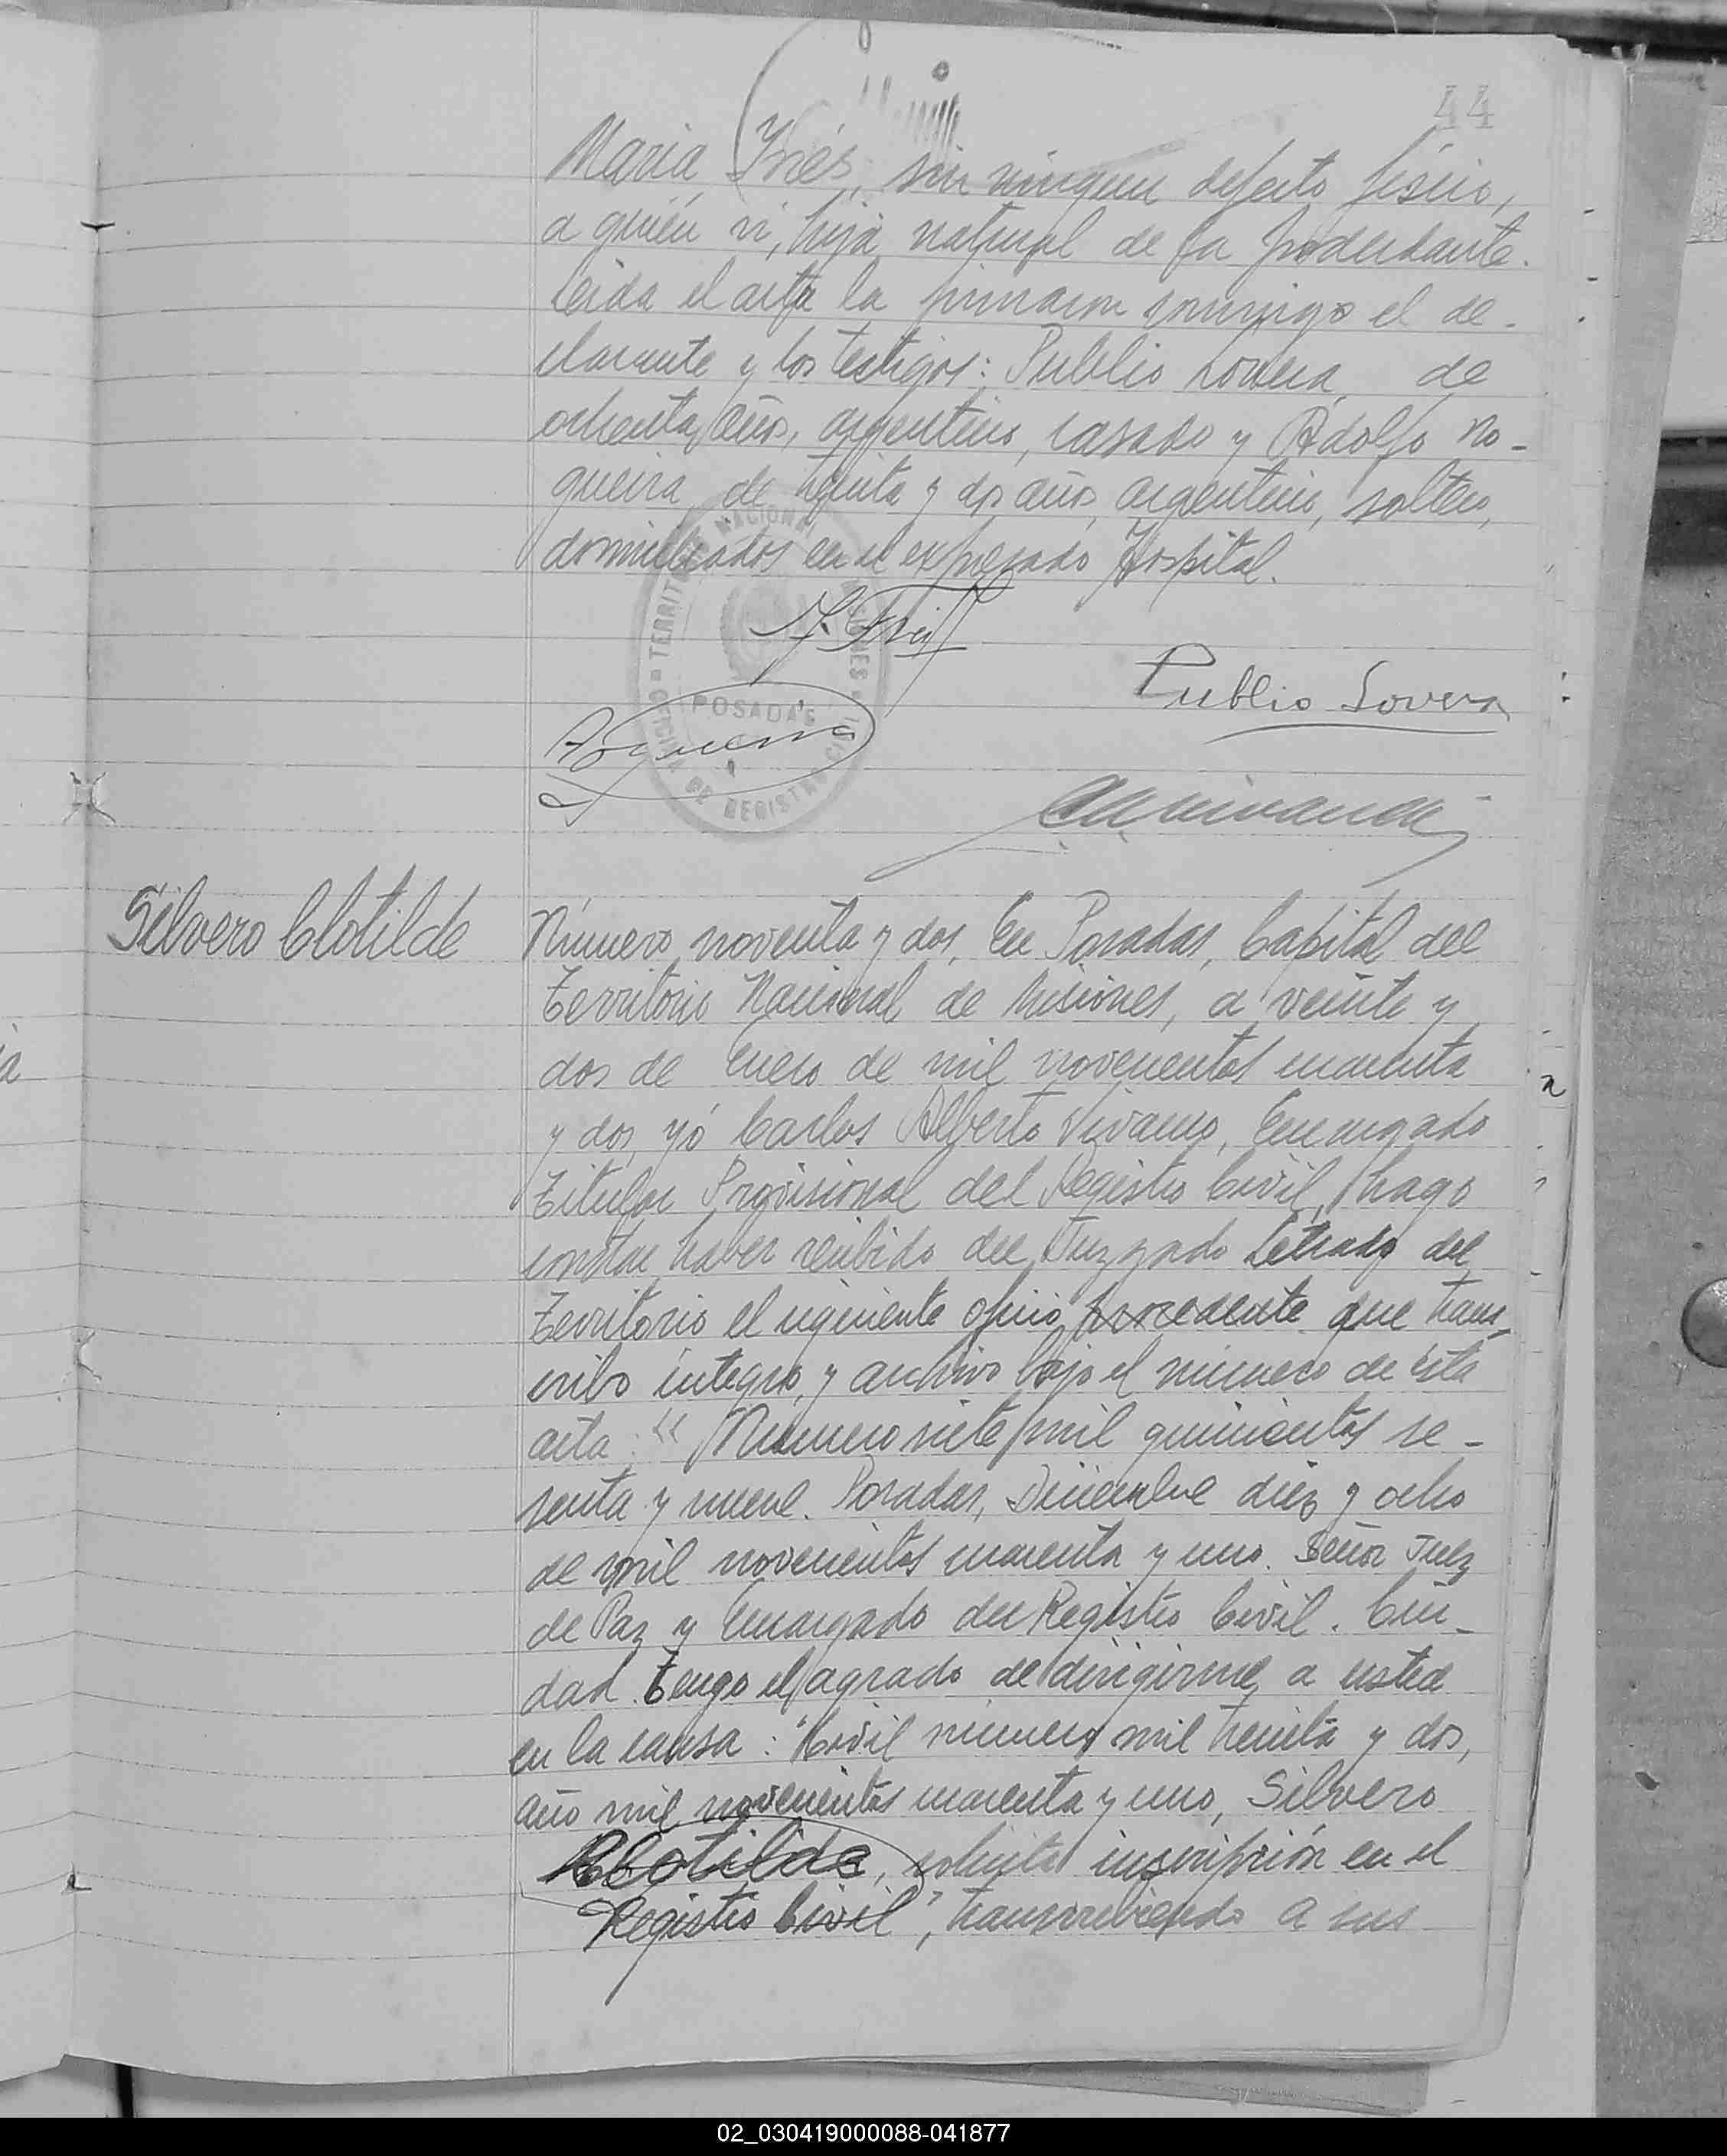 44
Maria Inés, sin ningun defecto fisico,
a quién vi, hija natural de la poderdante.
Leida el acta la firmaron conmigo el de-
clarante y los testigos: Publio Lovera, de
ochenta años, argentino, casado y Adolfo No-
gueira, de treinta y dos años, argentino, soltero,
domiciliados en el expresado Hospital.
TERRITORIO NACIONAL MISIONES
POSADAS
OFICINA DE REGISTRO CIVIL
Publio Lovera
Nogueira
Silvero Clotilde
Número noventa y dos, En Posadas, Capital del
Territorio Nacional de Misiones, a veinte y
dos de Enero de mil novecientos cuarenta
y dos, yó Carlos Alberto Vivanco, Encargado
Titular Provisional del Registro Civil, hago
constar haber recibido del Juzgado Letrado del
Territorio el siguiente oficio procedente que trans-
cribo integro, y archivo bajo el número de ésta
acta: "Número siete mil quinientos se-
senta y nueve. Posadas, Diciembre diez y ocho
de mil novecientos cuarenta y uno. Señor Juez
de Paz y Encargado del Registro Civil. Ciu-
dad. Tengo el agrado de dirigirme a usted
en la causa: "Civil número mil treinta y dos,
año mil novecientos cuarenta y uno, Silvero
Clotilde, solicita inscripción en el
Registro Civil", transcribiendo a sus
02_030419000088-041877